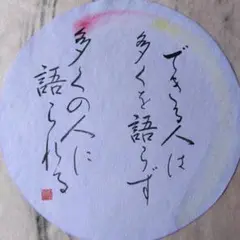 できる人は
多くを語らず
多くの人に
語られる